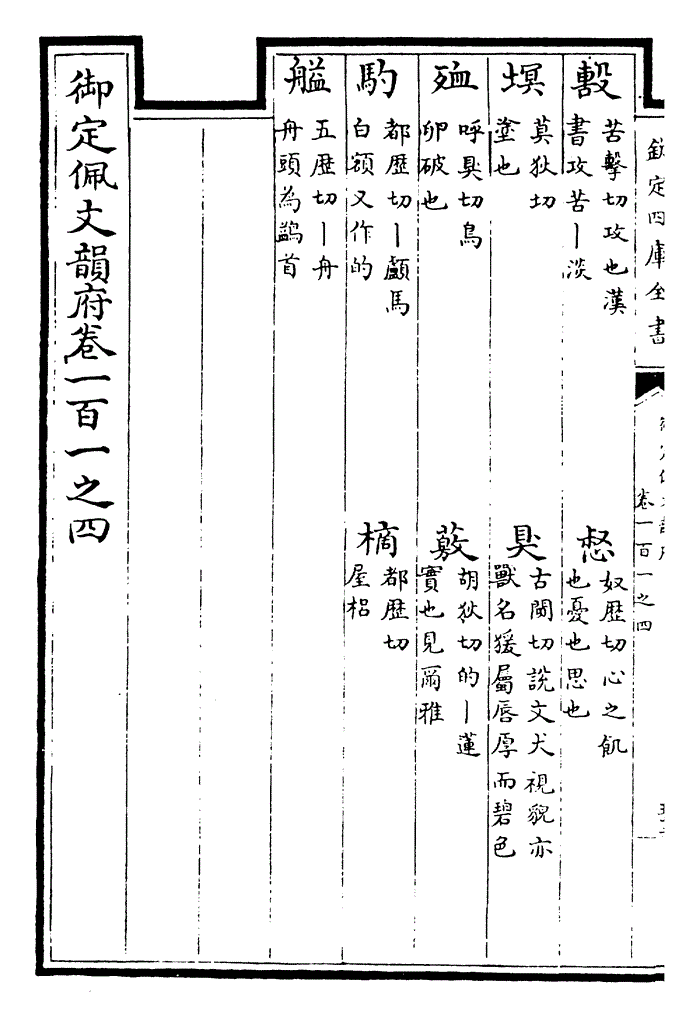 欽定四庫全書
卷一百一之四
毄 苦擊切攻也漢
書攻苦丨淡
惄 奴歴切心之飢
也憂也思也
塓 莫狄切
塗也
狊 古闃切說文犬視貌亦
獸名猨屬唇厚而碧色
殈 呼狊切鳥
卵破也
薂 胡狄切的丨蓮
實也見爾雅
馰 都歴切丨顱馬
白額又作的
樀 都歴切
屋梠
艗 五歴切丨舟
舟頭為鷁首
御定佩文韻府卷一百一之四